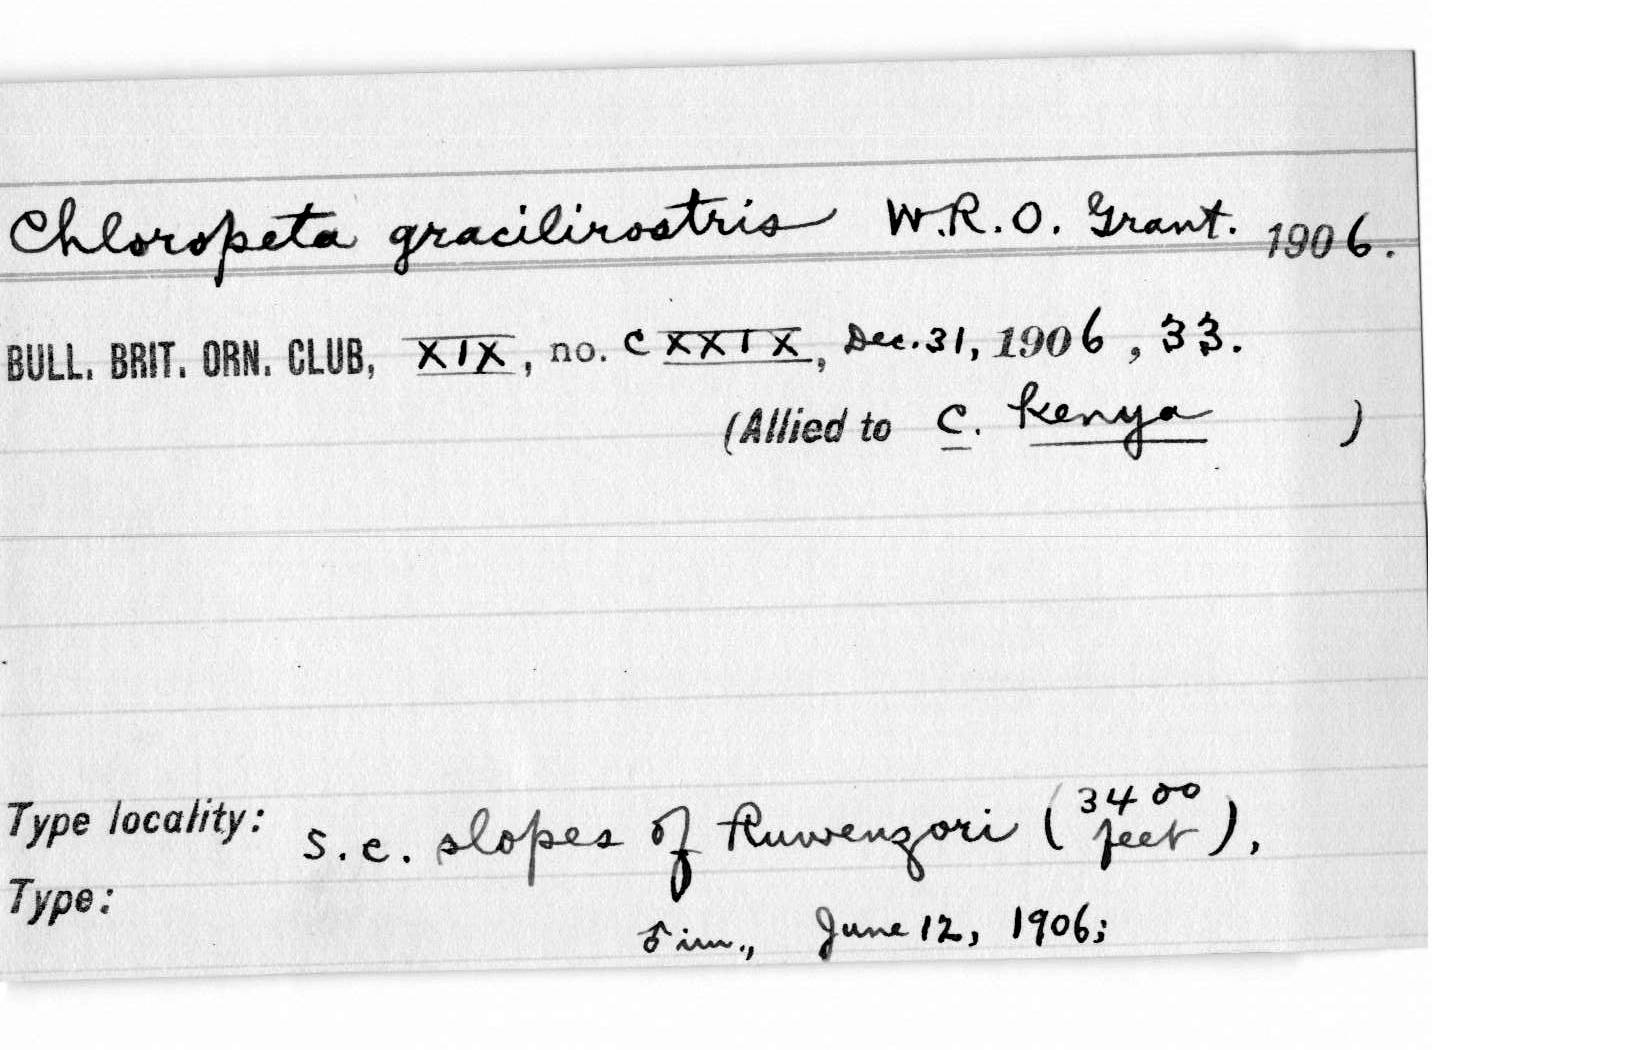 Chloropeta gracilirostris W.R.O. Grant. 1906.
BULL. BRIT. ORN. CLUB, XIX, no. CXXIX, Dec. 31, 1906, 33.
(Allied to C. kenya )
Type locality: S.e. slopes of Ruwenzori (3400 feet),
Type:
♂ im., June 12, 1906;